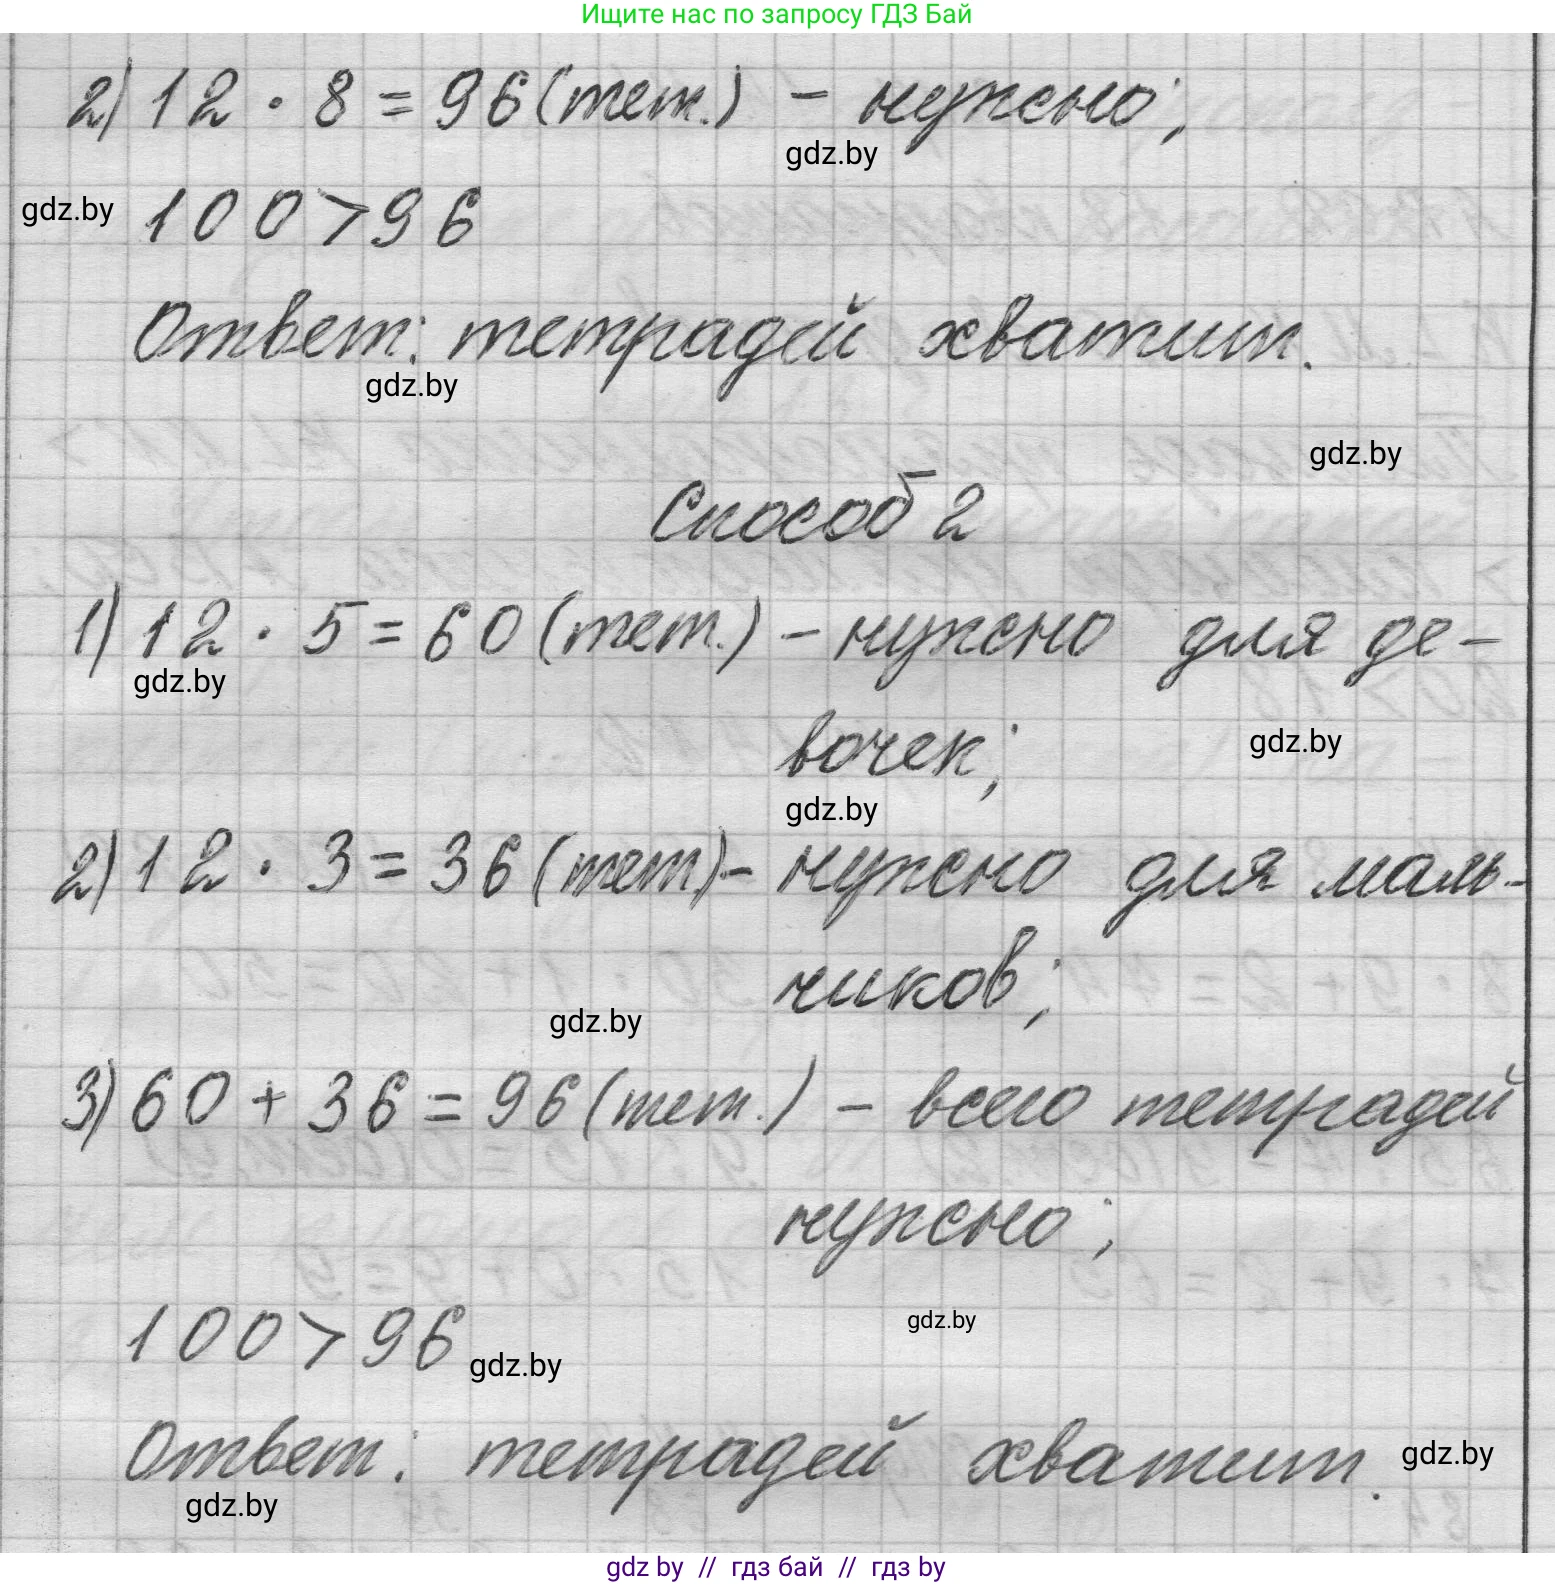 Ищите нас по запросу ГДЗ Бай
2) 12 · 8 = 96 (тет.) – нужно;
gdz.by
gdz.by 100 > 96
Ответ: тетрадей хватит.
gdz.by
gdz.by
Способ 2
1) 12 · 5 = 60 (тет.) – нужно для де-
gdz.by
вочек;
gdz.by
gdz.by
2) 12 · 3 = 36 (тет.) – нужно для маль-
чиков;
gdz.by
3) 60 + 36 = 96 (тет.) – всего тетрадей
нужно;
gdz.by
100 > 96
gdz.by
Ответ: тетрадей хватит.
gdz.by
gdz.by
gdz.by // гдз бай // гдз by